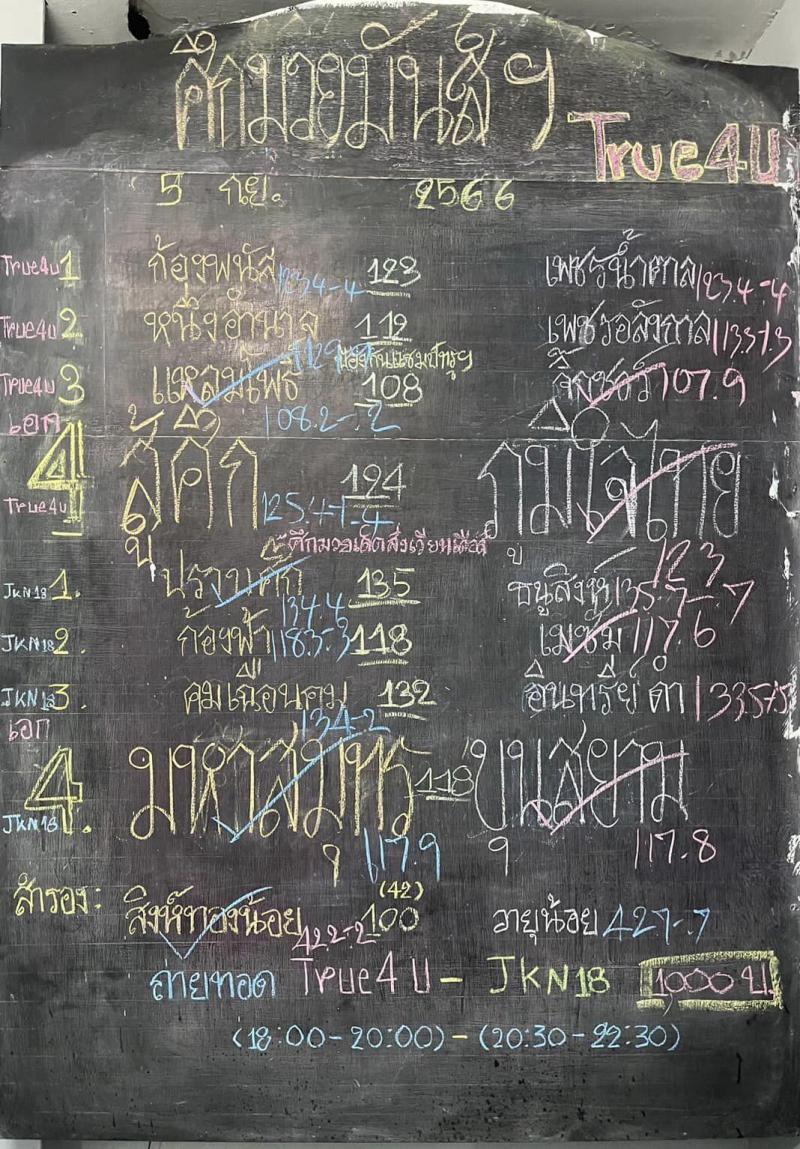 ศึกมวยมันส์ ฯ
True4U
5 กย. 2566
True4U 1 ก้องพนัส 123.4-.4 123 เพชรน้ำตาล 123.4-.4
True4U 2 หนึ่งอำนาจ 119 เพชรอลังการ 113.5
ป้องกันแชมป์ทรูฯ
True4U 3 แหลมโพธิ์ 108 107.9
108.2-.2
เอก
4 สู้ศึก 124 ภูมิใจไทย
True4U 125.4-1.4 123
ศึกมวยเด็ดสังเวียนเดือด
JKN18 1. ปราบศึก 135 ธนูสิงห์ 135.7-.7
134.4
JKN18 2. ก้องฟ้า 118.3-.3 118 เมซัม 117.6
JKN18 3. คมเฉือนคม 132 อินทรีย์ดำ 133.5
134-2
เอก
4. มหาสมุทร 118 ขุนสยาม
JKN18 117.9 117.8
(42)
สำรอง: สิงห์ทองน้อย 100 วายุน้อย 42.7-.7
42.2-.2
ถ่ายทอด True4U - JKN18 1000 บ.
(18:00-20:00)-(20:30-22:30)